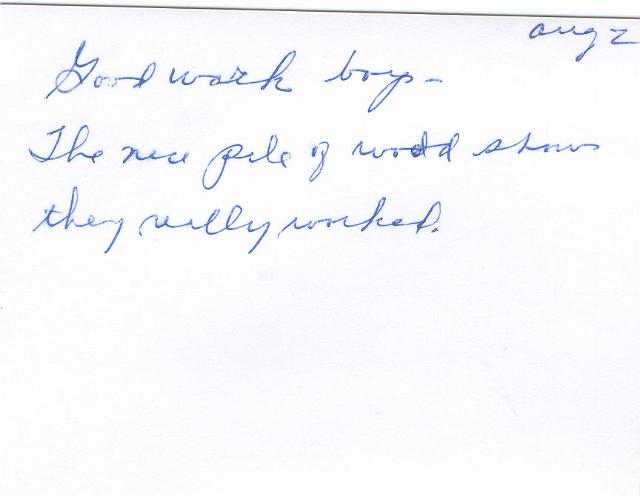 Aug 2
Good work boys -
The nice pile of wood shows
they really worked.